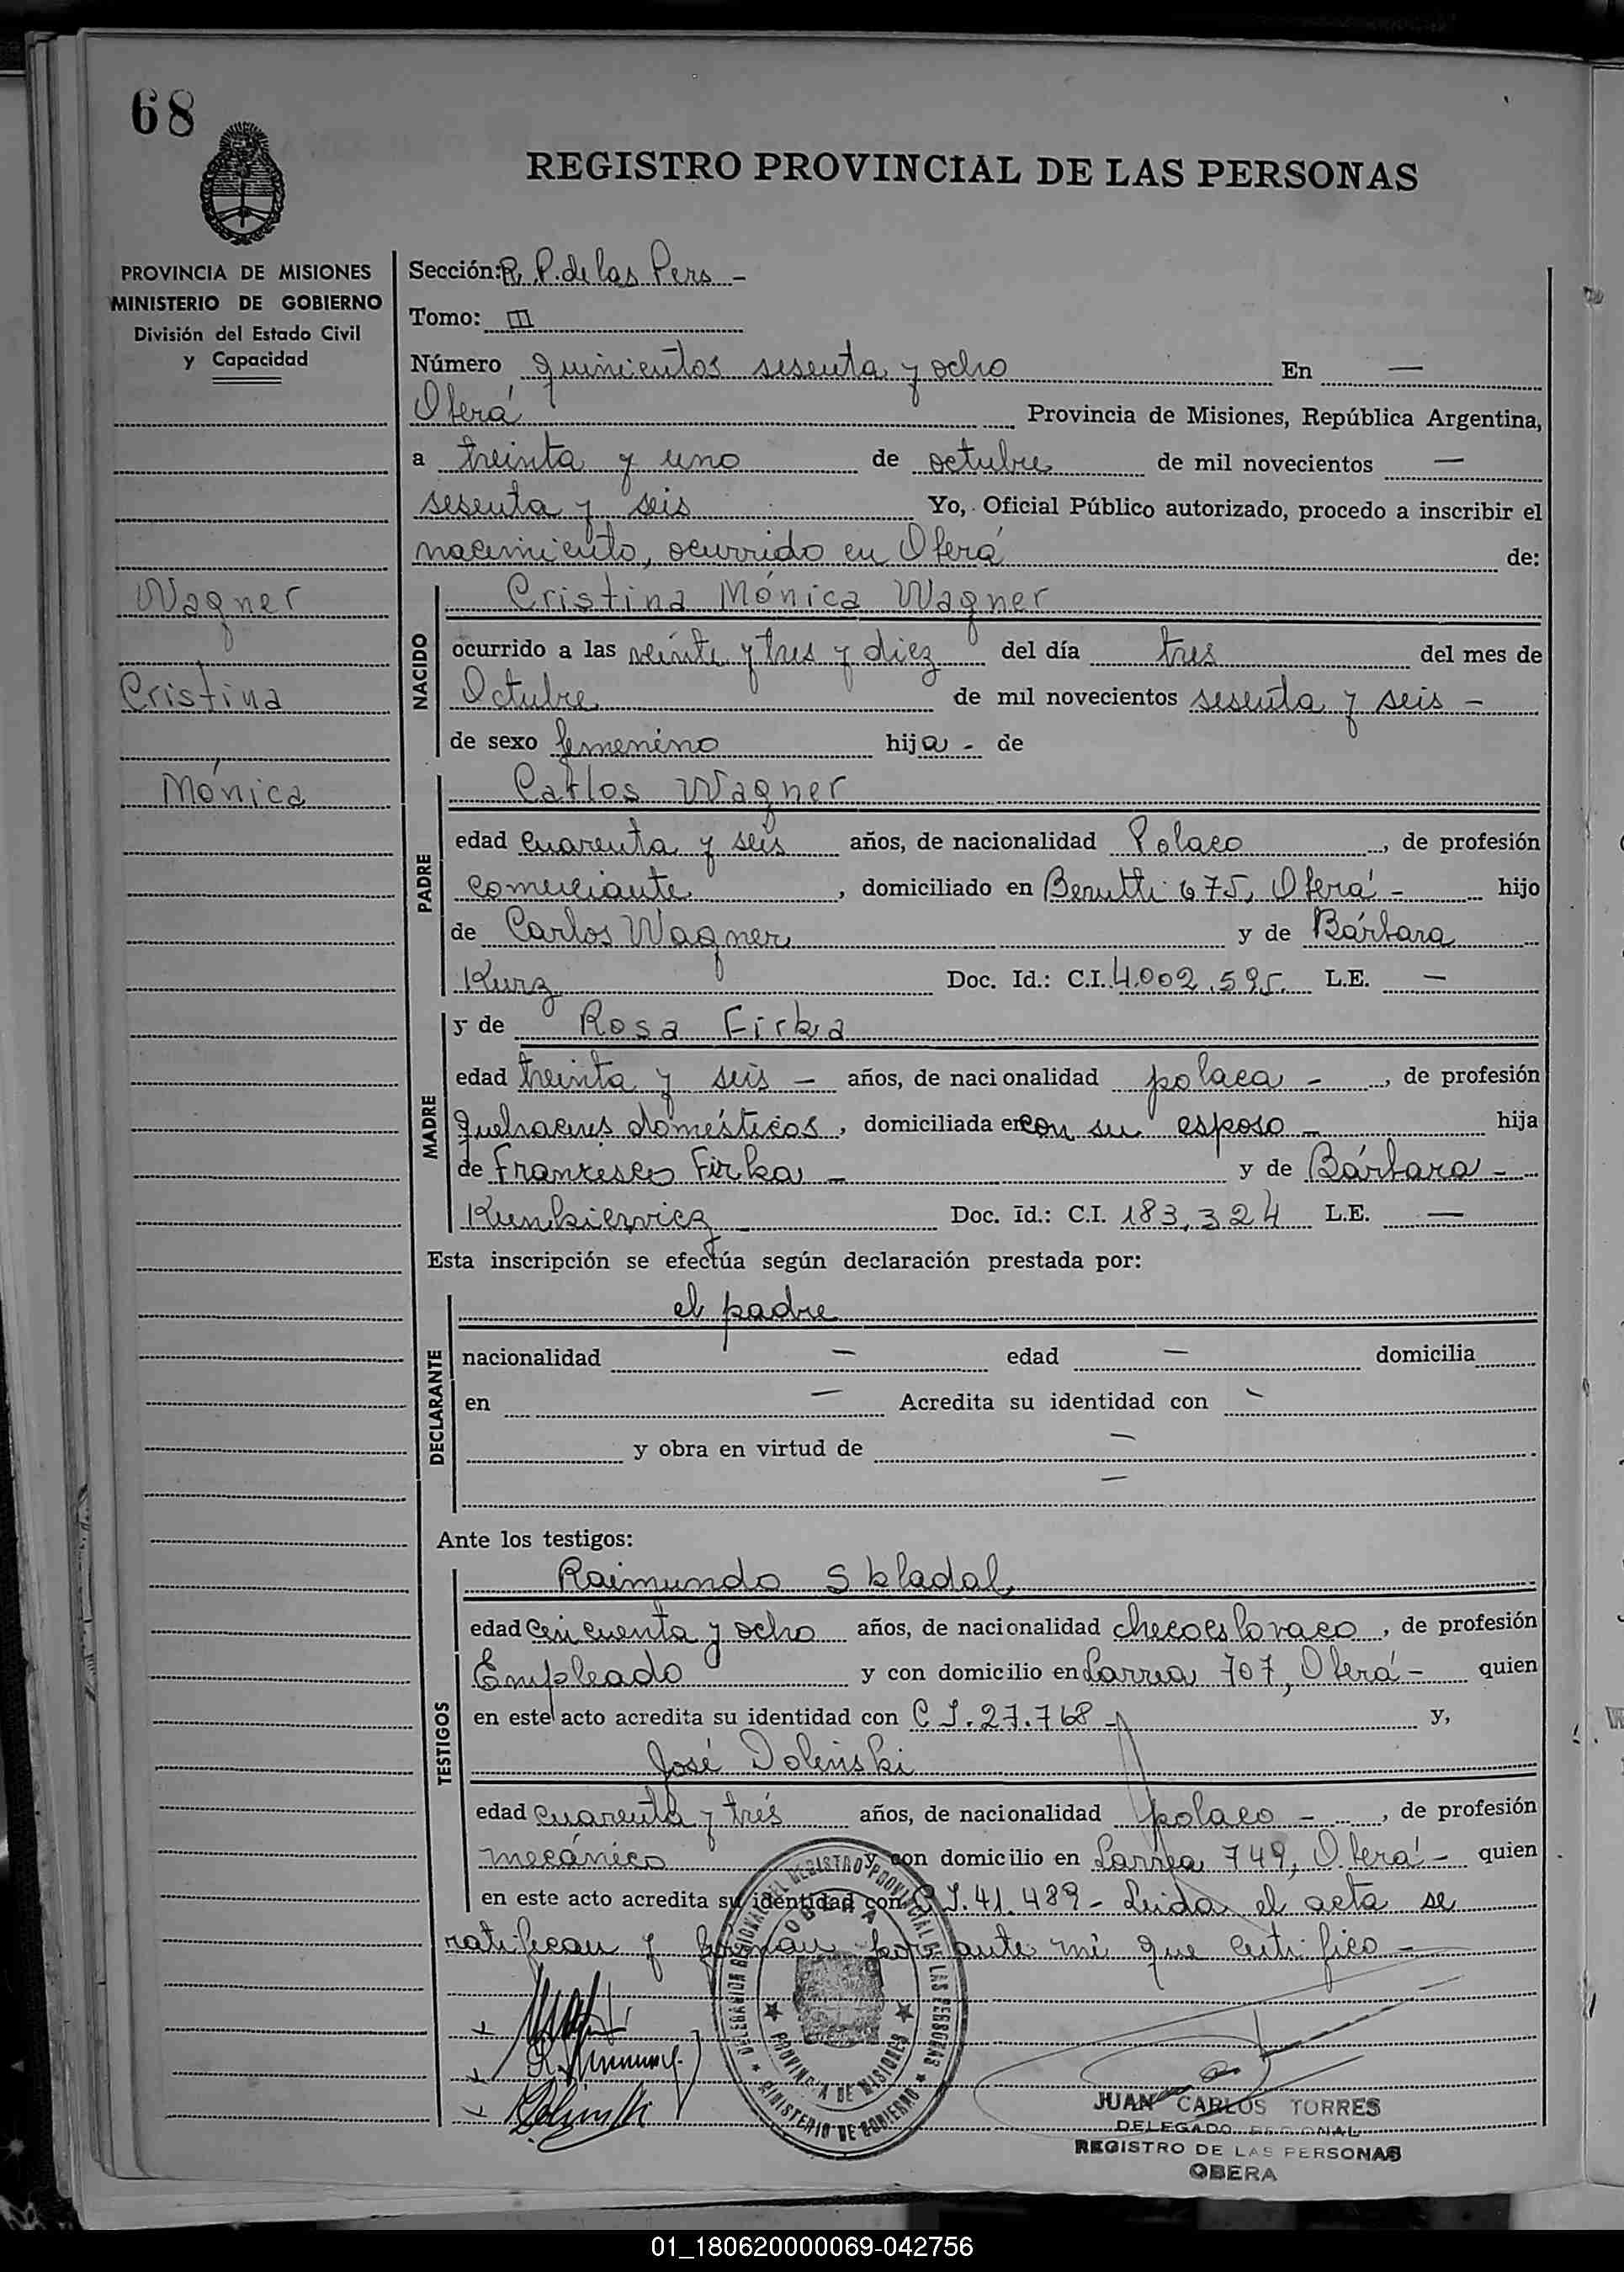 68
REGISTRO PROVINCIAL DE LAS PERSONAS
PROVINCIA DE MISIONES
MINISTERIO DE GOBIERNO
División del Estado Civil
y Capacidad
Wagner
Cristina
Mónica
Sección: R. P. de las Pers -
Tomo: III
Número quinientos sesenta y ocho En —
Oberá Provincia de Misiones, República Argentina,
a treinta y uno de octubre de mil novecientos —
sesenta y seis Yo, Oficial Público autorizado, procedo a inscribir el
nacimiento, ocurrido en Oberá de:
NACIDO
Cristina Mónica Wagner
ocurrido a las veinte y tres y diez del día tres del mes de
Octubre de mil novecientos sesenta y seis -
de sexo femenino hija - de
PADRE
Carlos Wagner
edad cuarenta y seis años, de nacionalidad Polaco, de profesión
comerciante, domiciliado en Berutti 675, Oberá - hijo
de Carlos Wagner y de Bárbara
Kurz Doc. Id.: C.I. 4.002.595 L.E. —
MADRE
y de Rosa Firka
edad treinta y seis — años, de nacionalidad polaca -, de profesión
quehaceres domésticos, domiciliada en con su esposo - hija
de Francisco Firka - y de Bárbara -
Kunkiewicz - Doc. Id.: C.I. 183.324 L.E. —
Esta inscripción se efectúa según declaración prestada por:
DECLARANTE
el padre
nacionalidad — edad — domicilia
en — Acredita su identidad con -
y obra en virtud de —
—
Ante los testigos:
TESTIGOS
Raimundo Skladal
edad cincuenta y ocho años, de nacionalidad checoeslovaco, de profesión
Empleado y con domicilio en Larrea 707, Oberá - quien
en este acto acredita su identidad con C I. 27.768 - y,
José Dolinski
edad cuarenta y tres años, de nacionalidad polaco -, de profesión
mecánico y con domicilio en Larrea 749, Oberá - quien
en este acto acredita su identidad con C I. 41.489 - Leida el acta se
ratifican y firman por ante mi que certifico -
DELEGACION REGIONAL DEL REGISTRO PROVINCIAL DE LAS PERSONAS
OBERA
PROVINCIA DE MISIONES
MINISTERIO DE GOBIERNO
JUAN CARLOS TORRES
DELEGADO REGIONAL
REGISTRO DE LAS PERSONAS
OBERA
01_180620000069-042756